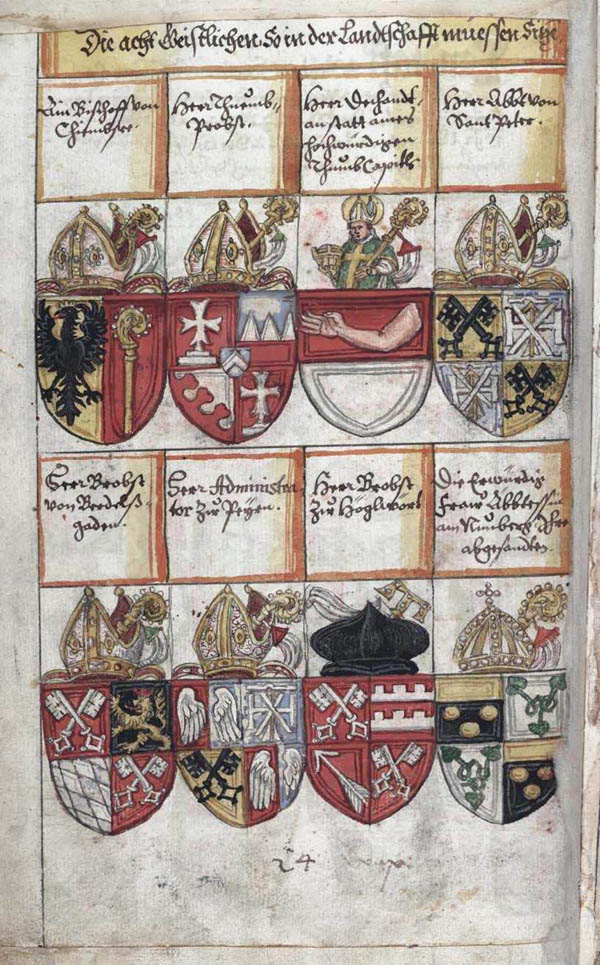 Die acht Geistlichen So in der Landtschafft müessen Sitze
Ain Bischoff von
Chiembsee.
Herr Thuemb-
Probst.
Herr Dechandt-
anstatt aines
hochwürdigen
Thumb Capitls
Herr Abbt von
Sant Peter.
Herr Brobst
von Berchtlß-
gaden.
Herr Administra
tor Zur Peyrn.
Herr Brobst
Zu Höglwort
Die Erwürdig
Fraw Abbtessin
am Nunberg Ihre
abgesandten.
24